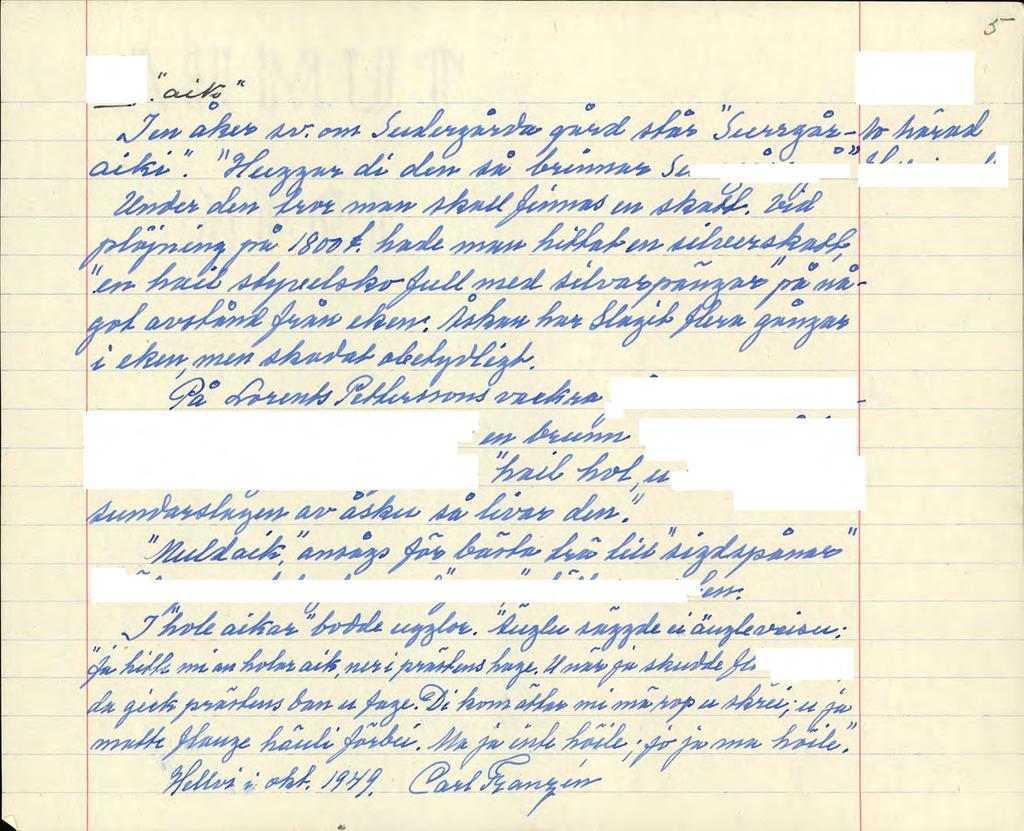 5
"aik"
I en åker sv. om Sudergårda gård står "Surrgår-
aiki". "Huggar di den så brinnar
Under den tror man skall finnas en skatt. Vid
plöjning på 1800 t. hade man hittat en silverskatt,
"en hail styvelsko full med silvarpängar" på nå-
got avstånd från eken. Åskan har slagit flera gånger
i eken, men skadat obetydligt.
På Lorents Petterssons vackra
en brunn
"hail hol, u
sundarslagen av åsku så livar den."
"Muldaik," ansågs för bästa trä till "sigdspånar"
en.
I "hole aikar" bodde ugglor. "Äuglu säggde ei äuglevaisu:
"Ja hitt mi an holar aik, ner i prästens hage. U när ja skudde
da gick prästens ban u jage. Di kom ättar mi mä rop u skrei; u ja
matte flauge häuli förbei. Ma ja inte höile; jo ja ma höile."
Hellvi i okt. 1949. Carl Franzén